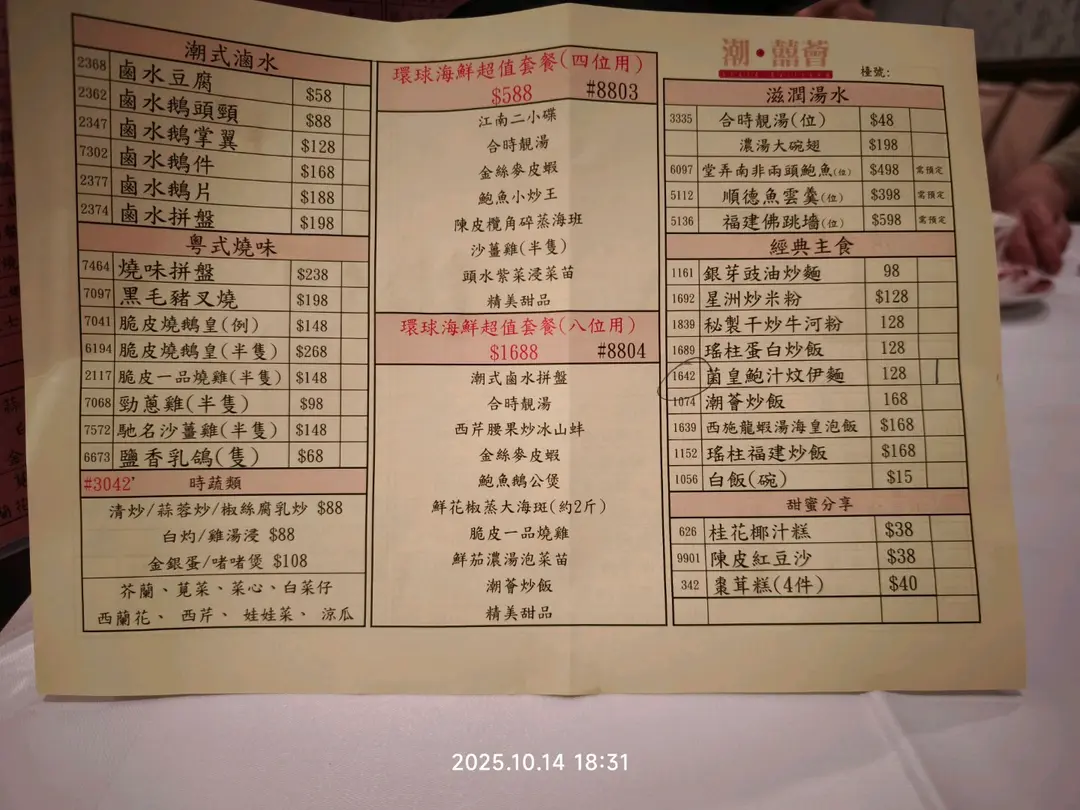 潮式滷水
2368 鹵水豆腐 $58
2362 鹵水鵝頭頸 $88
2347 鹵水鵝掌翼 $128
7302 鹵水鵝件 $168
2377 鹵水鵝片 $188
2374 鹵水拼盤 $198
粵式燒味
7464 燒味拼盤 $238
7097 黑毛豬叉燒 $198
7041 脆皮燒鵝皇(例) $148
6194 脆皮燒鵝皇(半隻) $268
2117 脆皮一品燒雞(半隻) $148
7068 勁蔥雞(半隻) $98
7572 馳名沙薑雞(半隻) $148
6673 鹽香乳鴿(隻) $68
#3042' 時蔬類
清炒/蒜蓉炒/椒絲腐乳炒 $88
白灼/雞湯浸 $88
金銀蛋/啫啫煲 $108
芥蘭、莧菜、菜心、白菜仔
西蘭花、 西芹、 娃娃菜、 涼瓜
環球海鮮超值套餐(四位用)
$588 #8803
江南二小碟
合時靚湯
金絲麥皮蝦
鮑魚小炒王
陳皮欖角碎蒸海班
沙薑雞(半隻)
頭水紫菜浸菜苗
精美甜品
環球海鮮超值套餐(八位用)
$1688 #8804
潮式鹵水拼盤
合時靚湯
西芹腰果炒冰山蚌
金絲麥皮蝦
鮑魚鵝公煲
鮮花椒蒸大海斑(約2斤)
脆皮一品燒雞
鮮茄濃湯泡菜苗
潮薈炒飯
精美甜品
潮•囍薈
檯號:
滋潤湯水
3335 合時靚湯(位) $48
濃湯大碗翅 $198
6097 堂弄南非兩頭鮑魚(位) $498 需預定
5112 順德魚雲羹(位) $398 需預定
5136 福建佛跳墻(位) $598 需預定
經典主食
1161 銀芽豉油炒麵 98
1692 星洲炒米粉 $128
1839 秘製干炒牛河粉 128
1689 瑤柱蛋白炒飯 128
1642 菌皇鮑汁炆伊麵 128
1074 潮薈炒飯 168
1639 西施龍蝦湯海皇泡飯 $168
1152 瑤柱福建炒飯 $168
1056 白飯(碗) $15
甜蜜分享
626 桂花椰汁糕 $38
9901 陳皮紅豆沙 $38
342 棗茸糕(4件) $40
2025.10.14 18:31